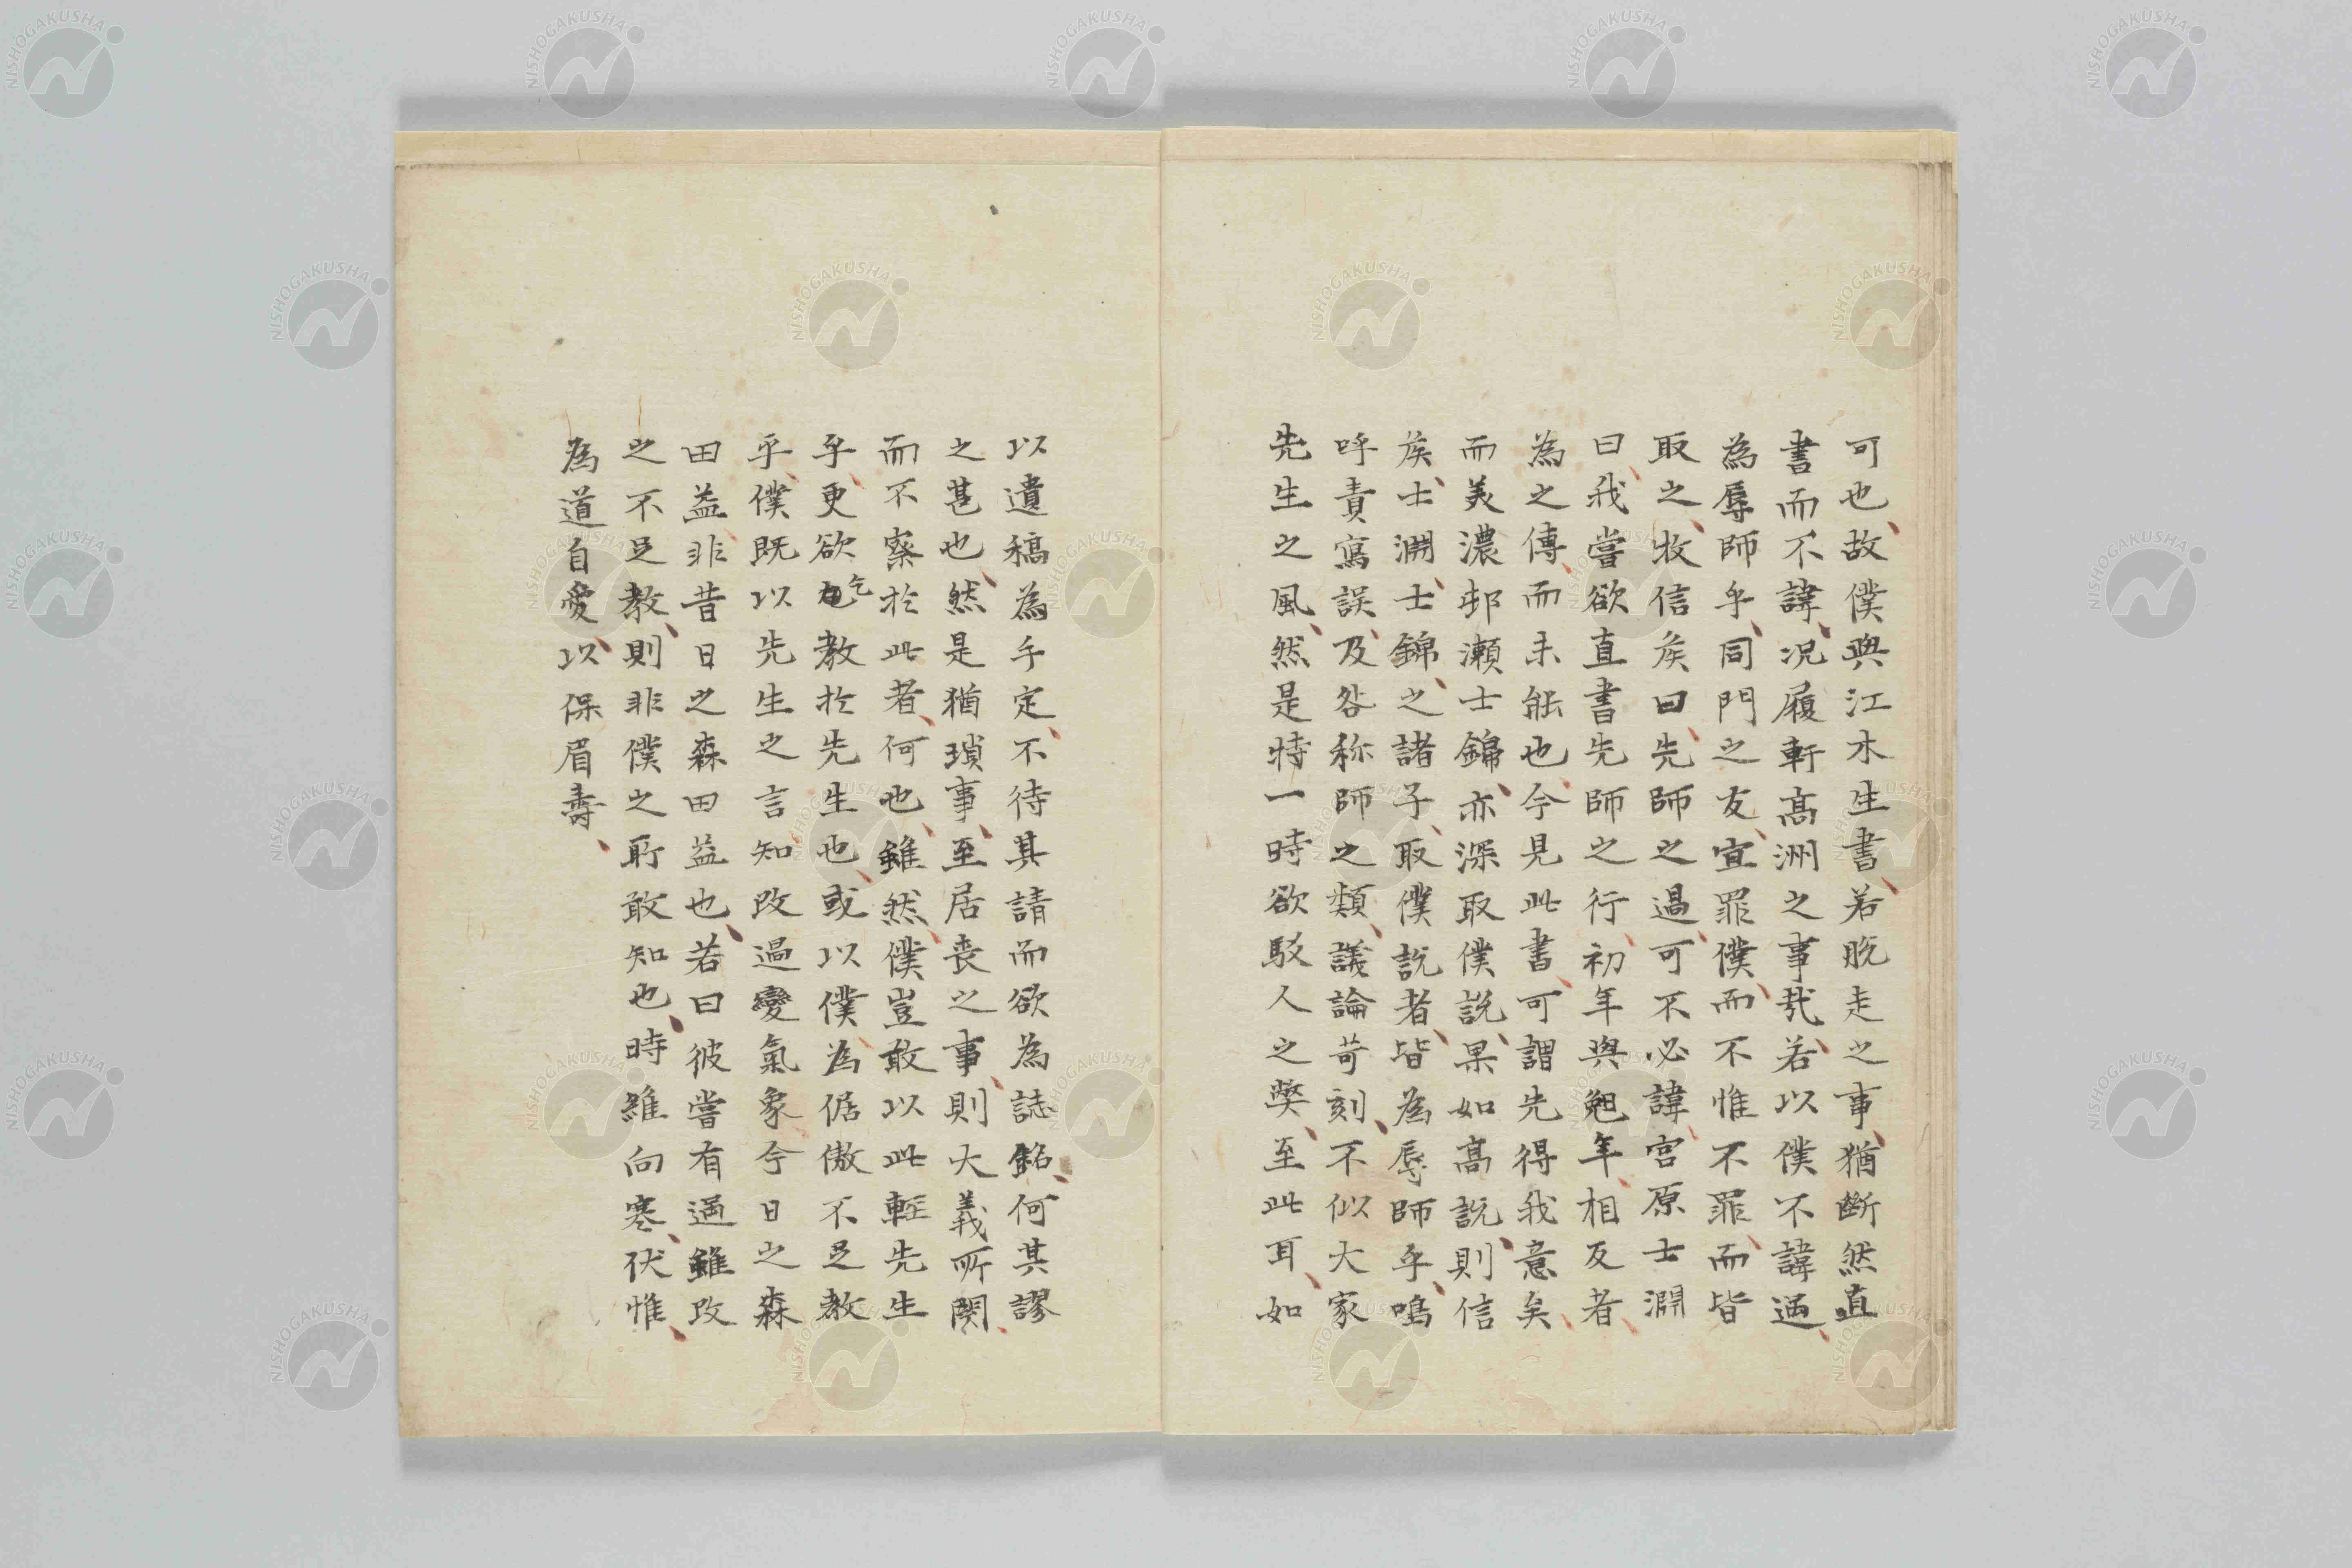 可也、故僕與江木生書、若脱走之事、猶斷然直
書而不諱、况履軒髙洲之事哉、若以僕不諱過、
為辱師乎、同門之友、宜罪僕、而不惟不罪、而皆
取之、牧信矦曰、先師之過、可不必諱、宮原士淵
曰、我嘗欲直書先師之行、初年與晩年、相反者、
為之傳、而未能也、今見此書、可謂先得我意矣、
而美濃邨瀬士錦、亦深取僕説、果如髙説、則信
矦、士淵、士錦、之諸子、取僕説者、皆為辱師乎、嗚
呼責寫誤、及咎称師之類、議論苛刻、不似大家
先生之風、然是特一時欲駁人之弊、至此耳、如
以遺稿為手定、不待其請而欲為誌銘、何其謬
之甚也、然是猶瑣事、至居喪之事、則大義所関、
而不察於此者、何也、雖然、僕豈敢以此輕先生
乎、更欲乞教於先生也、或以僕為倨傲不足教
乎、僕既以先生之言知改過變氣象今日之森
田益、非昔日之森田益也、若曰彼嘗有過雖改
之不足教、則非僕之所敢知也、時維向寒、伏惟、
為道自愛、以保眉壽、
NISHOGAKUSHA